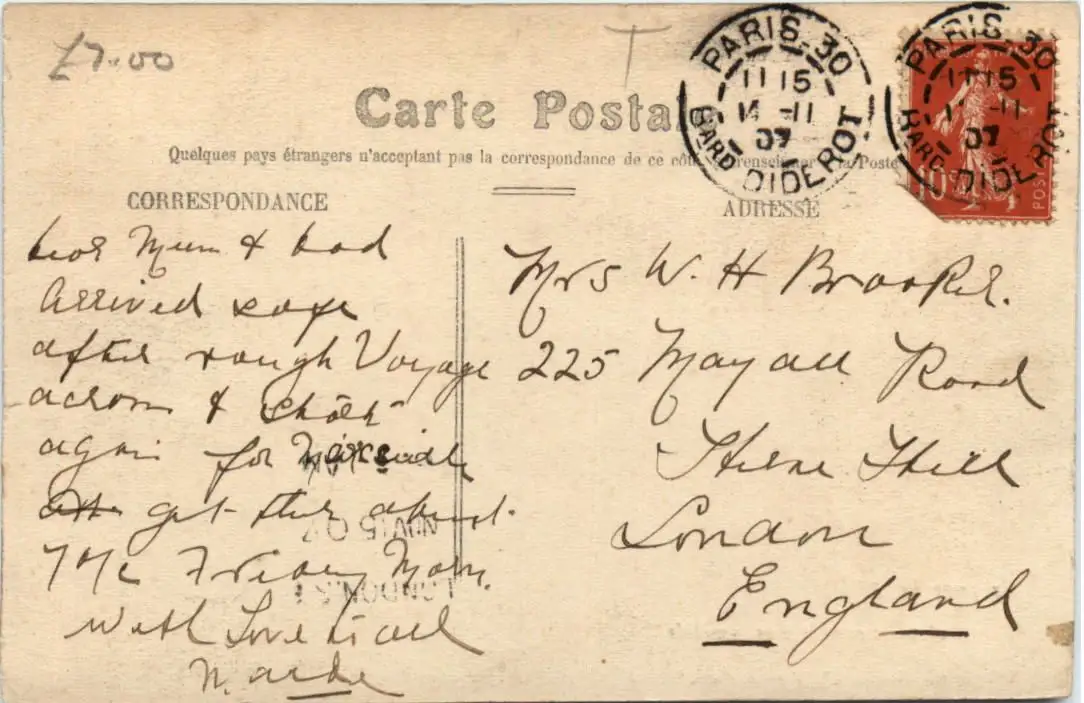 £7.00
T
Carte Postale
Quelques pays étrangers n'acceptant pas la correspondance de ce côté
la Poste
PARIS.30
11 15
14 -11
07
BARD DIDEROT
PARIS.30
11 15
-11
07
BARD DIDEROT
10
POSTES
CORRESPONDANCE
ADRESSE
Dear Mum & Dad
Arrived safe
after rough Voyage
across & start
again for Marseille
get there about
Friday Morn.
with Love to all
Mrs W. H Brooker.
225 Mayall Road
Herne Hill
London
England
NOV 15 07
LONDON.S